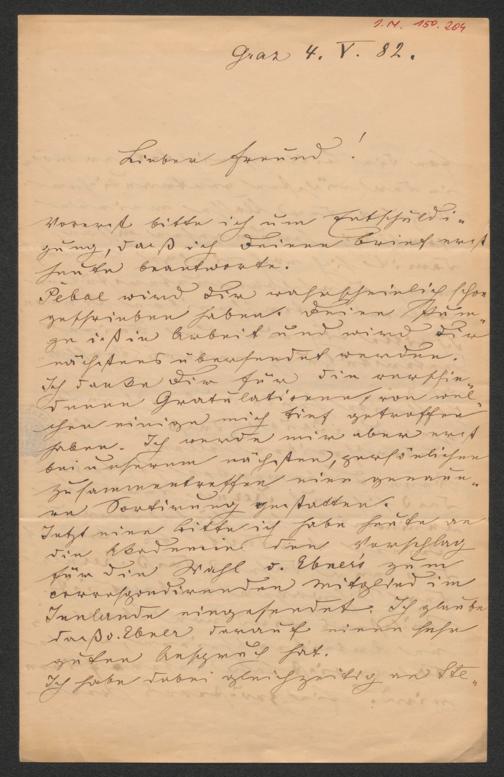 I.N. 150.204
Graz 4. V. 82.
Lieber Freund!
Vorerst bitte ich um Entschuldi-
gung, daß ich Deinen Brief erst
heute beantworte.
Pebal wird Dir wahrscheinlich schon
geschrieben haben. Deine Pum-
pe ist in Arbeit und wird Dir
nächstens übersendet werden.
Ich danke Dir für die verschie-
denen Gratulationen, von wel-
chen einige mich tief getroffen
haben. Ich werde mir aber erst
bei unserem nächsten, persönlichen
Zusammentreffen eine genaue-
re Sortirung gestatten.
Jetzt eine Bitte ich habe heute an
die Akademie den Vorschlag
für die Wahl v. Ebner's zum
correspondirenden Mitglied im
Inlande eingesendet. Ich glaube
daß v. Ebner darauf einen sehr
guten Anspruch hat.
Ich habe dabei gleichzeitig an Ste-